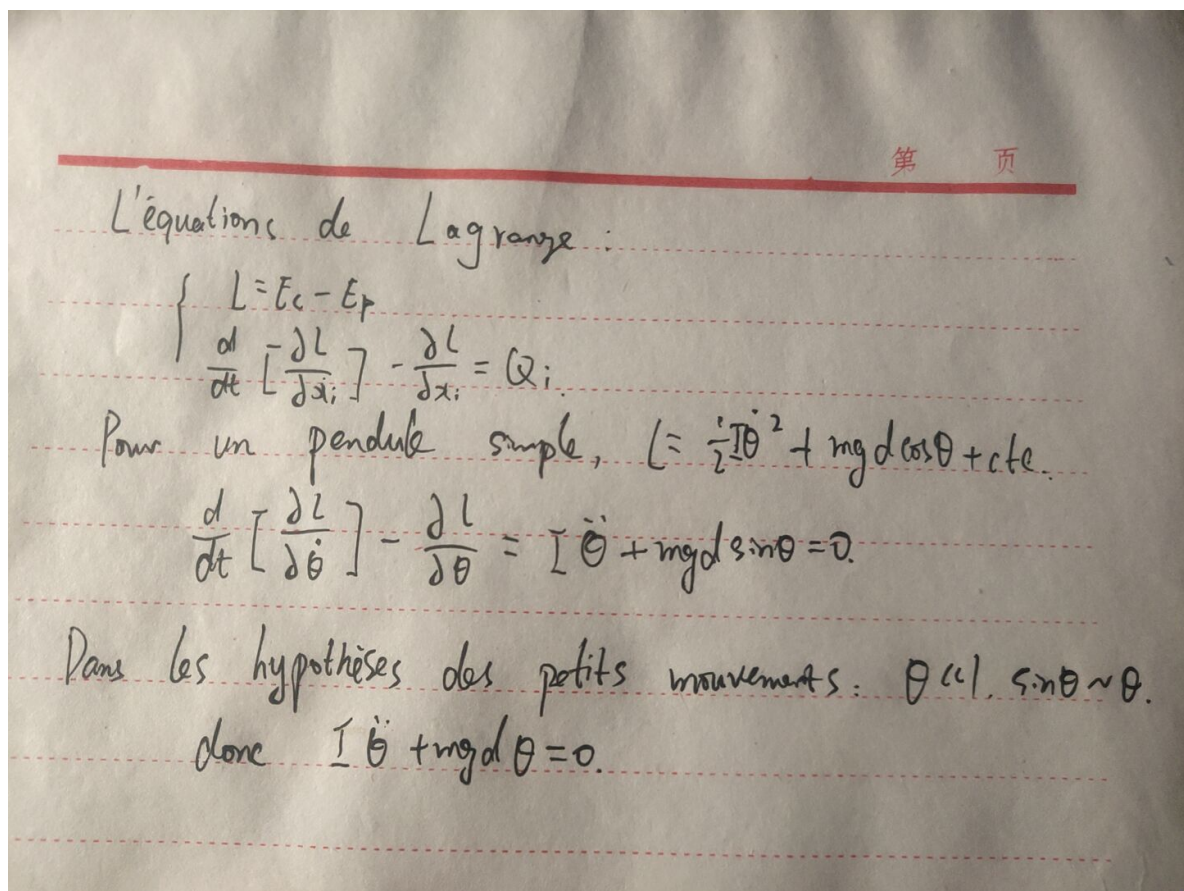 第 页
L'équations de Lagrange :
L = Ec - Ep
d/dt [∂L/∂ẋi] - ∂L/∂xi = Qi.
Pour un pendule simple, L = 1/2 Iθ̇² + mgd cosθ + cte.
d/dt [∂L/∂θ̇] - ∂L/∂θ = Iθ̈ + mgd sinθ = 0.
Dans les hypothèses des petits mouvements : θ<<1. sinθ ~ θ.
donc Iθ̈ + mgdθ = 0.